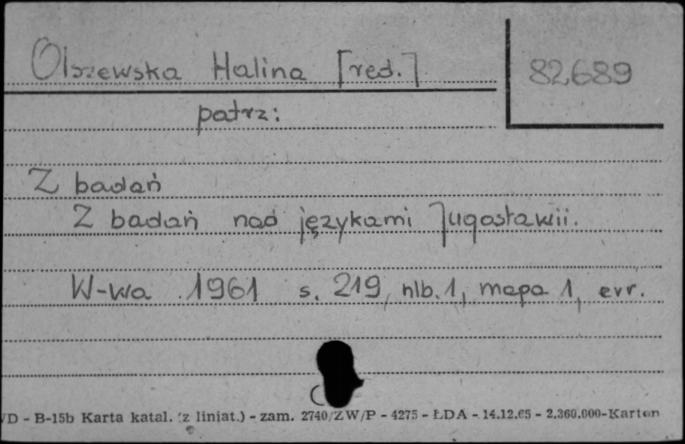 Olszewska Halina [red.]
82689
patrz:
Z badań
Z badań nad językami Jugosławii.
W-wa 1961 s. 219, nlb. 1, mapa 1, err.
VD - B-15b Karta katal. (z liniat.) - zam. 2740/ZW/P - 4275 - ŁDA - 14.12.65 - 2.360.000-Karton